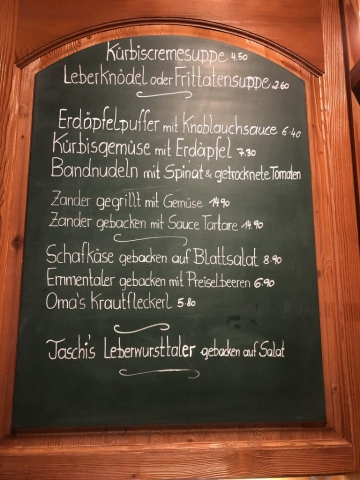 Kürbiscremesuppe 4.50
Leberknödel oder Frittatensuppe 2.60
Erdäpfelpuffer mit Knoblauchsauce 6.40
Kürbisgemüse mit Erdäpfel 7.80
Bandnudeln mit Spinat & getrocknete Tomaten
Zander gegrillt mit Gemüse 14.90
Zander gebacken mit Sauce Tartare 14.90
Schafkäse gebacken auf Blattsalat 8.90
Emmentaler gebacken mit Preiselbeeren 6.90
Oma's Krautfleckerl 5.80
Taschi's Leberwursttaler gebacken auf Salat